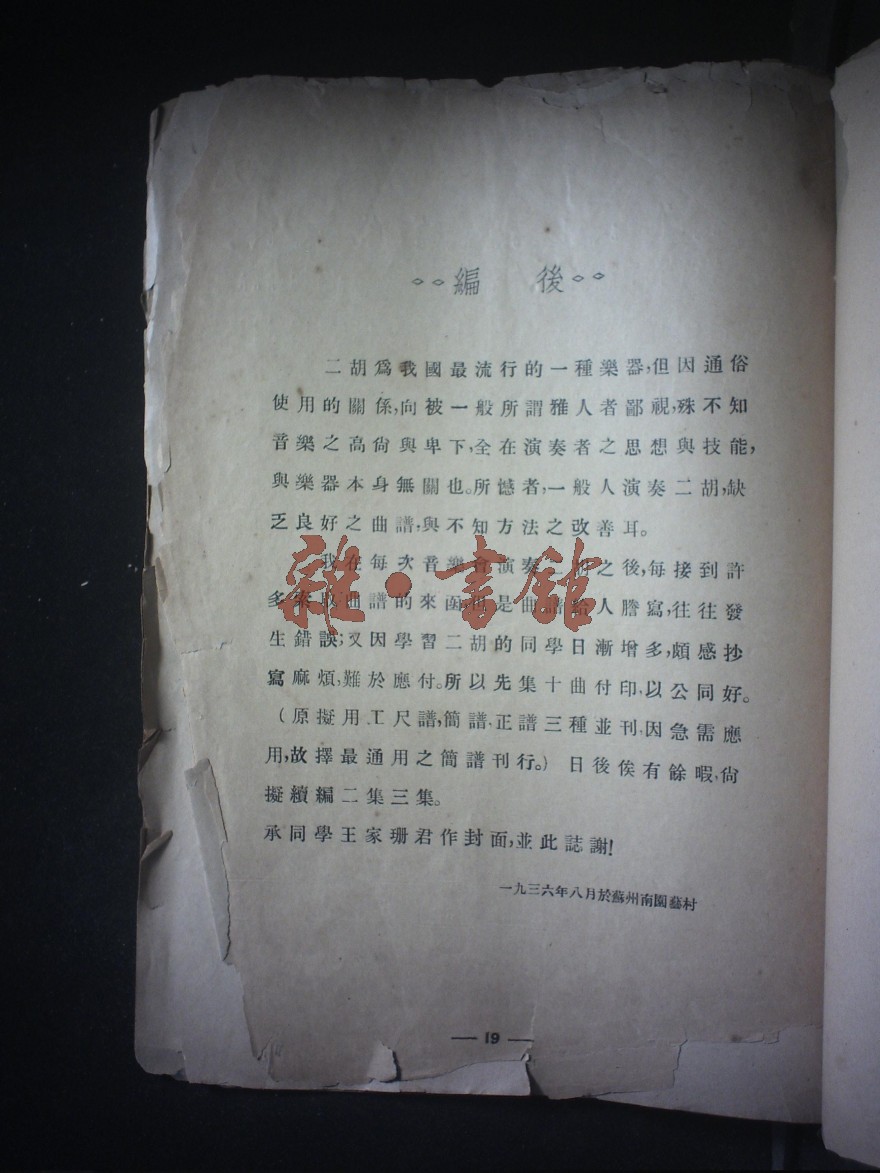 編 後
二胡爲我國最流行的一種樂器,但因通俗
使用的關係,向被一般所謂雅人者鄙視,殊不知
音樂之高尙與卑下,全在演奏者之思想與技能,
與樂器本身無關也。所憾者,一般人演奏二胡,缺
乏良好之曲譜,與不知方法之改善耳。
我在每次音樂會演奏 之後,每接到許
多索取曲譜的來函 是曲譜給人謄寫,往往發
生錯誤;又因學習二胡的同學日漸增多,頗感抄
寫麻煩,難於應付。所以先集十曲付印,以公同好。
(原擬用工尺譜,簡譜,正譜三種並刊,因急需應
用,故擇最通用之簡譜刊行。) 日後俟有餘暇,尙
擬續編二集三集。
承同學王家珊君作封面,並此誌謝!
一九三六年八月於蘇州南園藝村
— 19 —
雜·書館